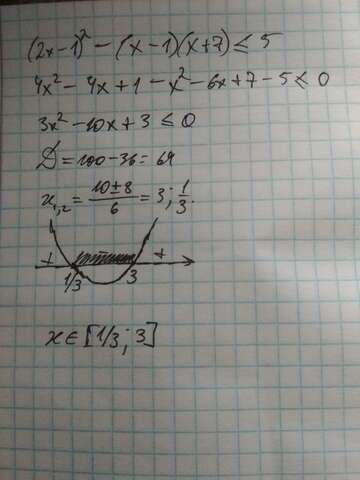 (2x-1)² - (x-1)(x+7) ≤ 5
4x² - 4x + 1 - x² - 6x + 7 - 5 ≤ 0
3x² - 10x + 3 ≤ 0
D = 100 - 36 = 64
x₁,₂ = (10 ± 8)/6 = 3; 1/3.
+ +
1/3 3
x ∈ [1/3; 3]